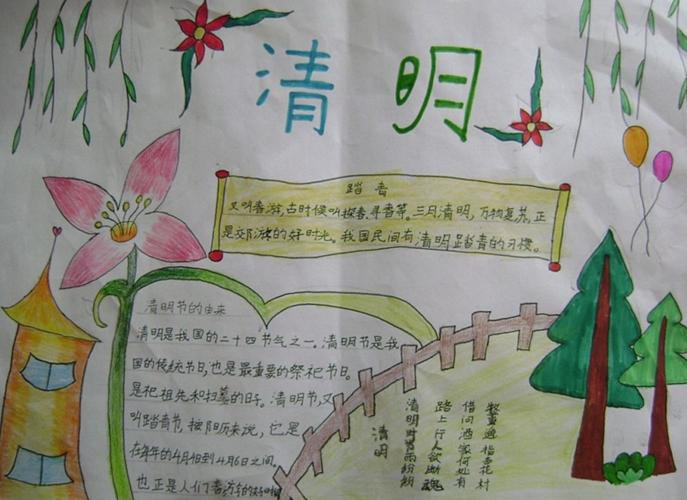 清明
踏青
又叫春游,古时候叫探春、寻春等。三月清明,万物复苏,正
是郊游的好时光。我国民间有清明踏青的习惯。
清明节的由来
清明是我国的二十四节气之一。清明节是我
国的传统节日,也是最重要的祭祀节日。
是祀祖先和扫墓的日子。清明节,又
叫踏青节,按阳历来说,它是
在每年的4月4日到4月6日之间。
也正是人们春游的好时
清明
清明时节雨纷纷
路上行人欲断魂
借问酒家何处有
牧童遥指杏花村